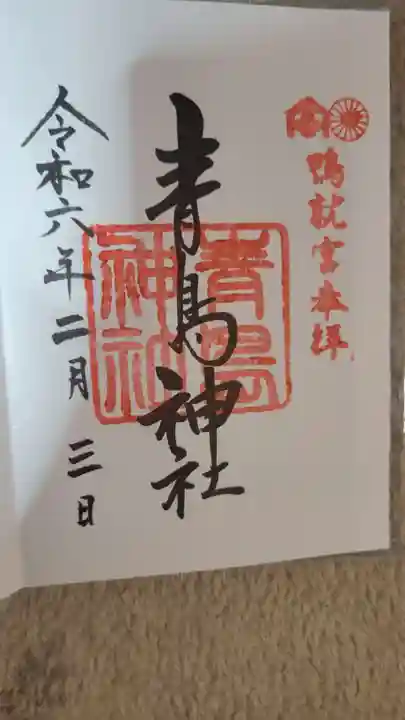 鴨就宮奉拝
青島神社
青島
神社
令和六年二月三日